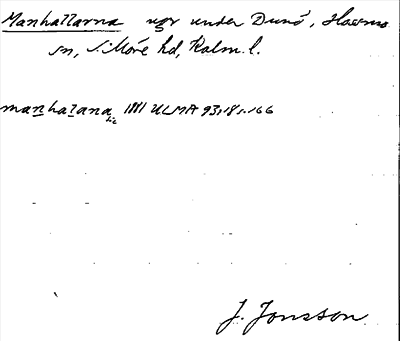 Manhattarna ugr under Dunö, Hossmo
sn, S. Möre hd, Kalm. l.
manhatana sic 1881 ULMA 93:18 s. 166
J. Jonsson